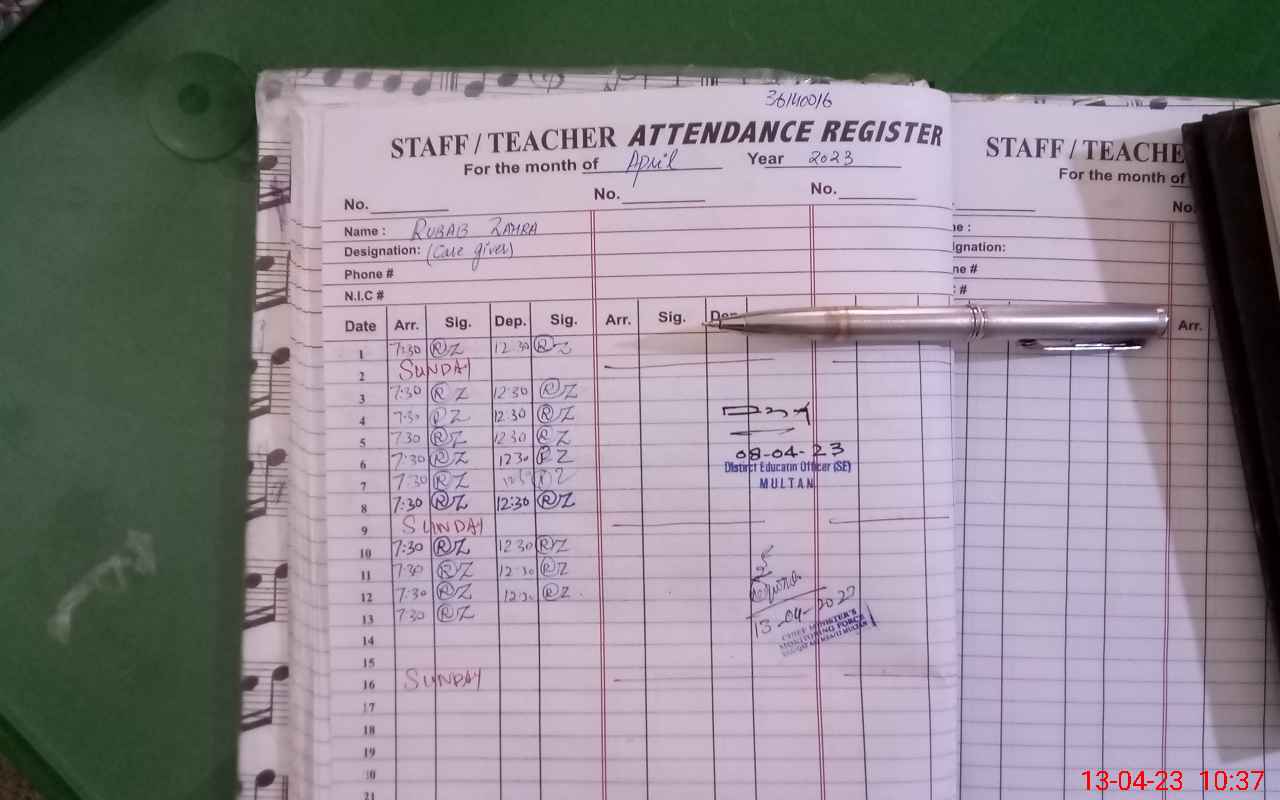 36140016
STAFF / TEACHER ATTENDANCE REGISTER
For the month of April Year 2023
No. No. No.
Name : RUBAB ZAHRA
Designation: (Care giver)
Phone #
N.I.C #
Date Arr. Sig. Dep. Sig. Arr. Sig. Dep.
1 7:30 RZ 12:30 RZ
2 SUNDAY
3 7:30 RZ 12:30 RZ
4 7:30 RZ 12:30 RZ
5 7:30 RZ 12:30 RZ
6 7:30 RZ 12:30 RZ
7 7:30 RZ
8 7:30 RZ 12:30 RZ
9 SUNDAY
10 7:30 RZ 12:30 RZ
11 7:30 RZ 12:30 RZ
12 7:30 RZ 12:30 RZ
13 7:30 RZ
14
15
16 SUNDAY
17
18
19
21
08-04-23
District Educatin Officer (SE)
MULTAN
13-04-2023
CHIEF MINISTER'S
MONITORING FORCE
STAFF / TEACHE
For the month of
No.
me :
ignation:
ne #
#
Arr.
13-04-23 10:37